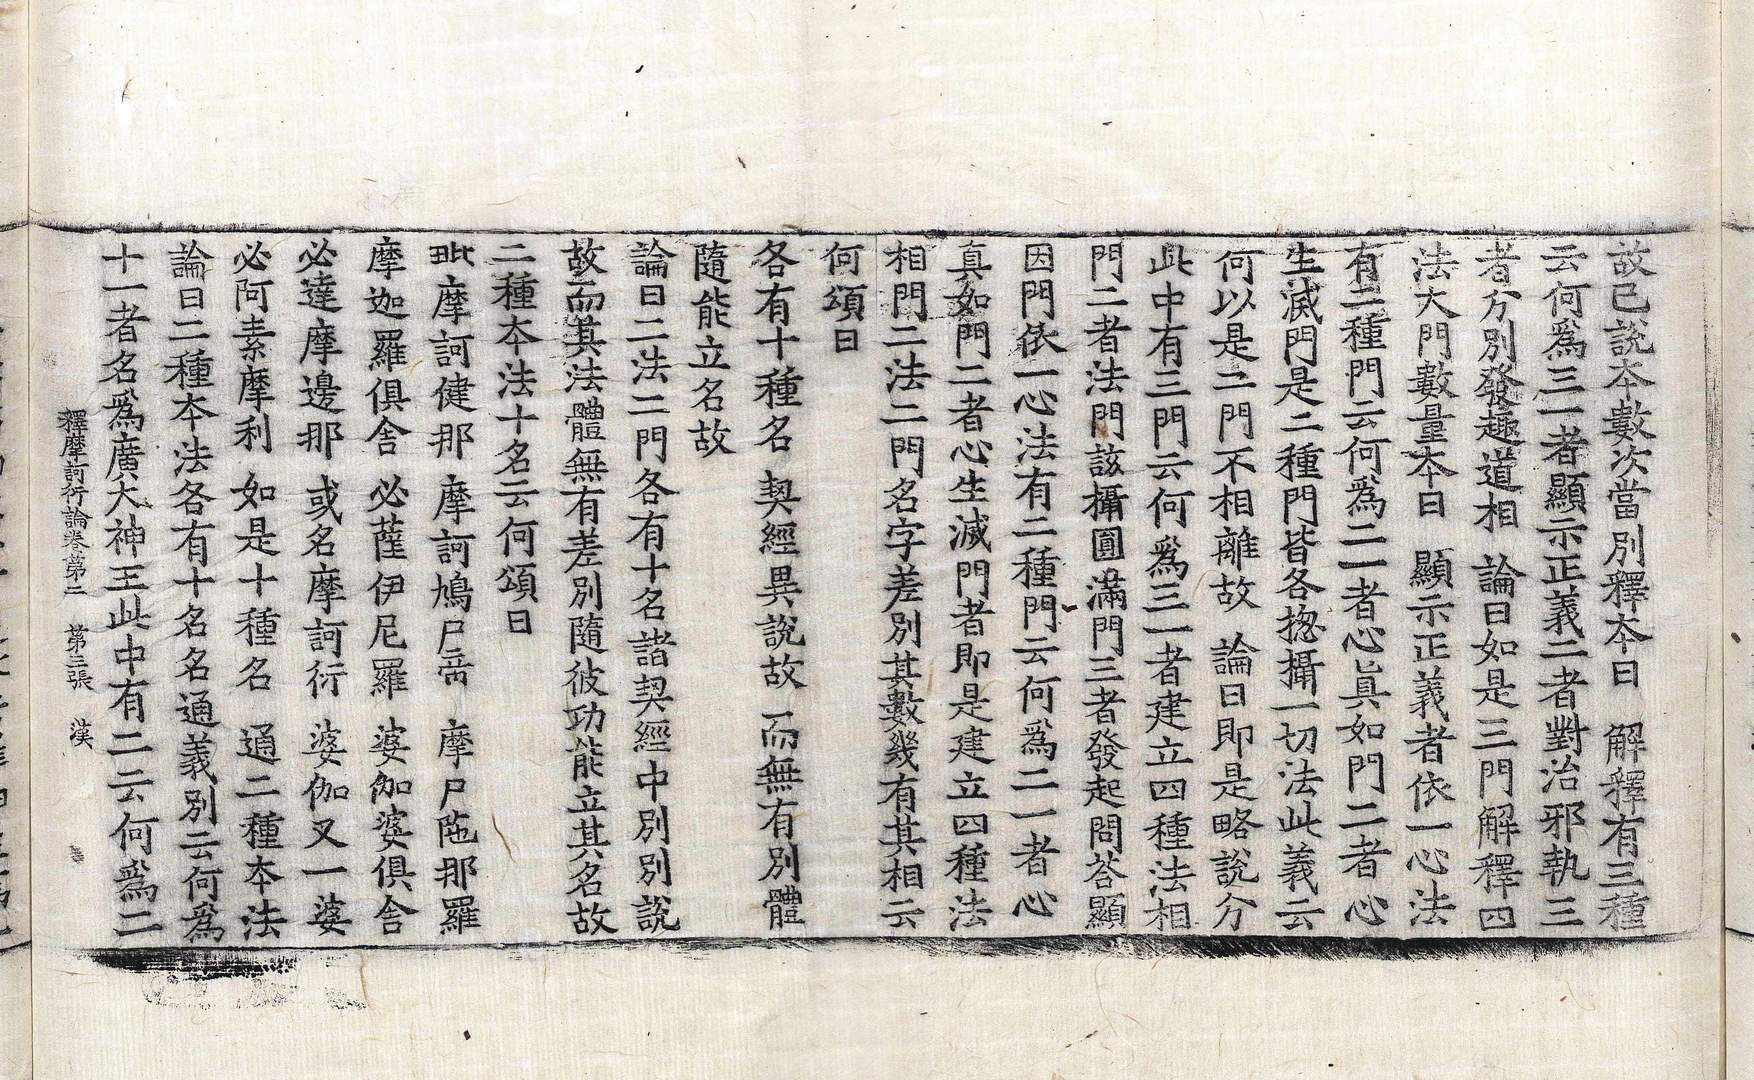 故已說本數次當別釋本曰 解釋有三種
云何爲三一者顯示正義二者對治邪執三
者分別發趣道相 論曰如是三門解釋四
法大門數量本曰 顯示正義者依一心法
有二種門云何爲二一者心眞如門二者心
生滅門是二種門皆各揔攝一切法此義云
何以是二門不相離故 論曰即是略說分
此中有三門云何爲三一者建立四種法相
門二者法門該攝圓滿門三者發起問荅顯
因門依一心法有二種門云何爲二一者心
真如門二者心生滅門者即是建立四種法
相門二法二門名字差別其數幾有其相云
何頌曰
各有十種名 契經異說故 而無有別體
隨能立名故
論曰二法二門各有十名諸契經中別別說
故而其法體無有差別隨彼功能立其名故
二種本法十名云何頌曰
毗摩訶健那 摩訶鳩尸帝 摩尸陁那羅
摩迦羅俱舍 必薩伊尼羅 婆伽婆俱舍
必達摩邊那 或名摩訶衍 婆伽又一婆
必阿素摩利 如是十種名 通二種本法
論曰二種本法各有十名名通義別云何爲
十一者名爲廣大神王此中有二云何爲二
釋摩訶衍論卷第二 第三張 漢